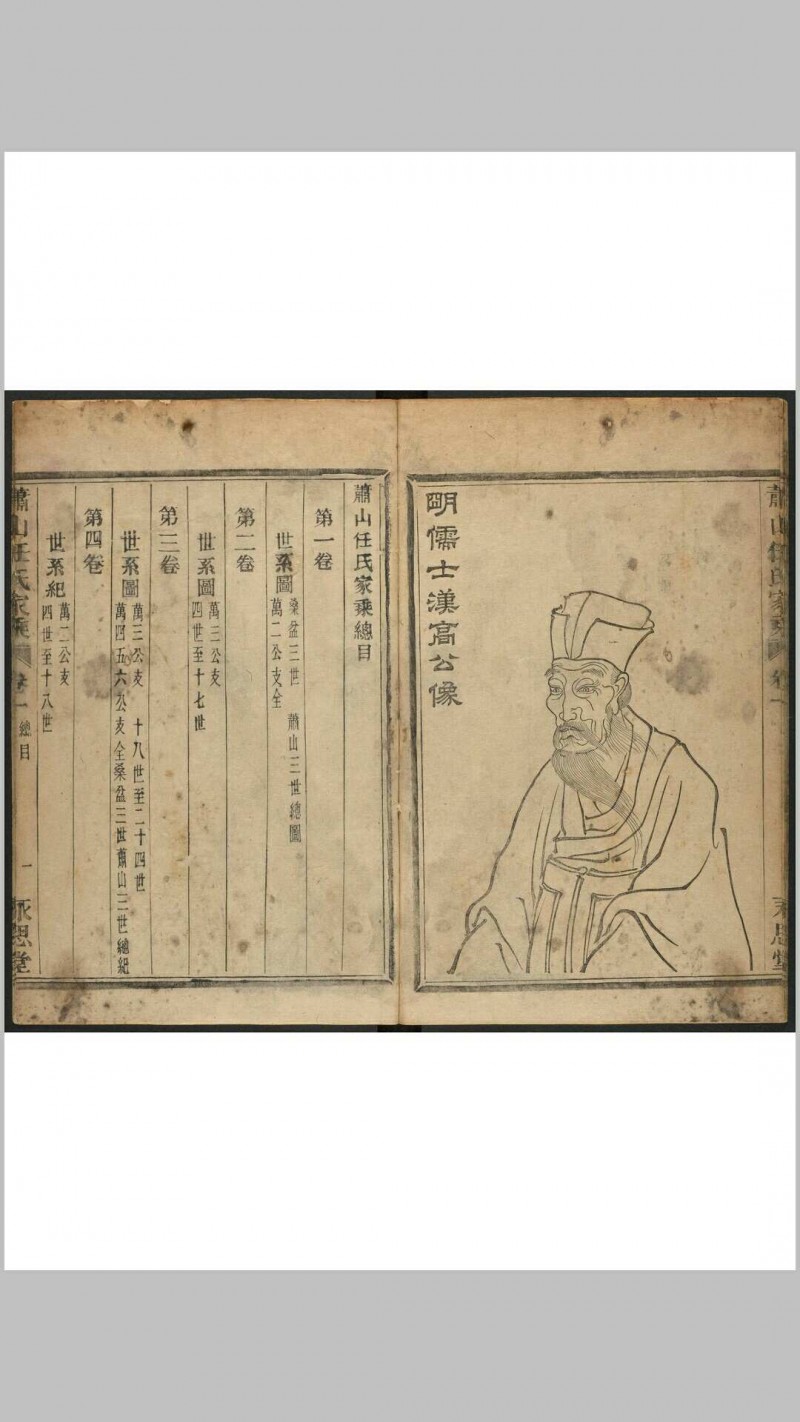 蕭山任氏家乘 卷一
永思堂
明儒士漢高公像
蕭山任氏家乘總目
第一卷
世系圖 桑盆三世 蕭山三世總圖
萬二公支全
第二卷
世系圖 萬三公支
四世至十七世
第三卷
世系圖 萬三公支 十八世至二十四世
萬四五六公支全桑盆三世蕭山三世總紀
第四卷
世系紀 萬二公支
四世至十八世
蕭山任氏家乘 卷一 總目 一 永思堂